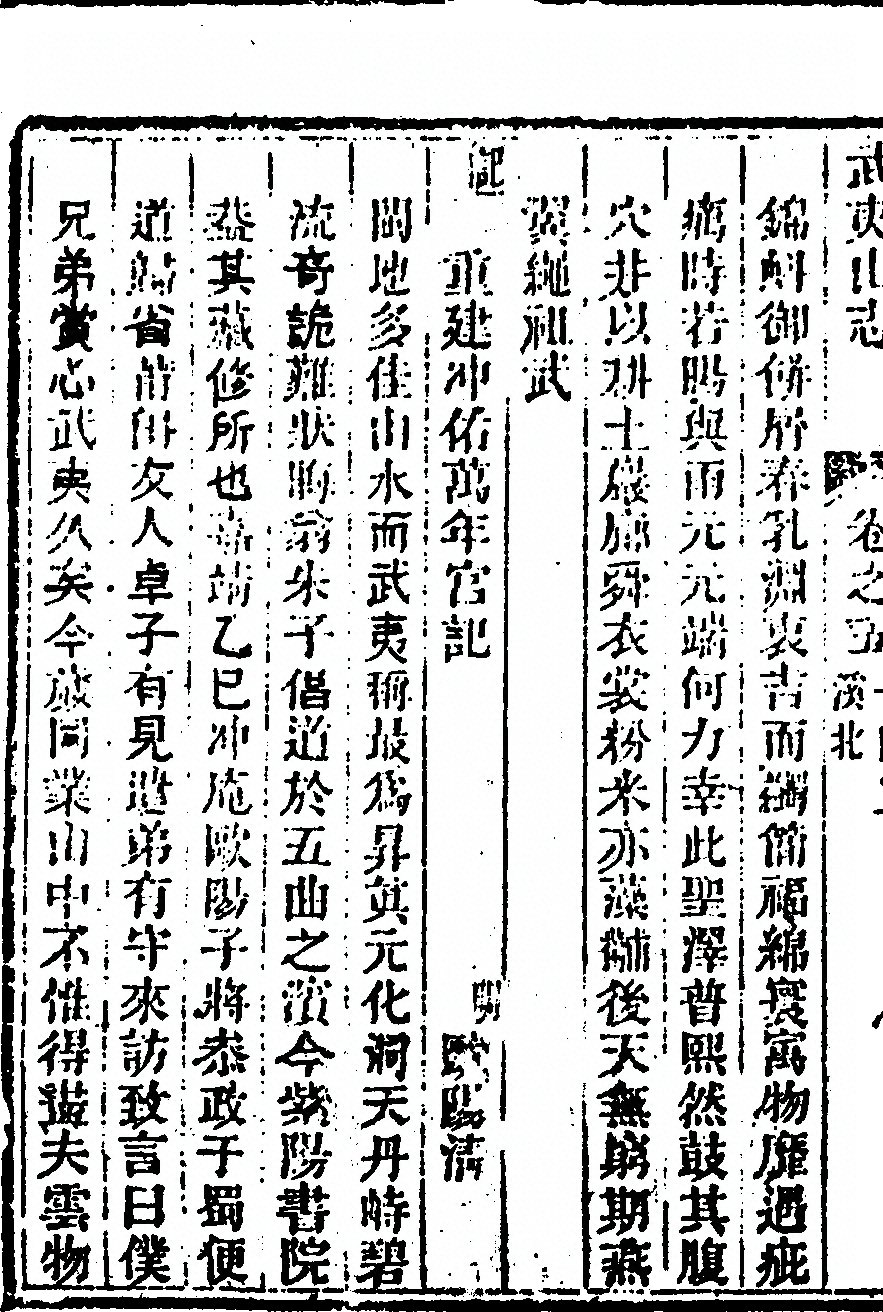 武夷山志 卷之五 溪北
錦 御 屏 乳淵衷吉而 簡福綿寰寓物靡遇疵
癘時若暘與雨元元端何力幸此聖澤普熙然鼓其腹
穴非以耕土巖廊舜衣裳粉米亦藻黼後天無窮期燕
翼繩祖武
記
重建冲佑萬年宮記 明 歐陽清
閩地多佳山水而武夷稱最為昇真元化洞天丹峙碧
流奇詭難狀晦翁朱子倡道於五曲之濱今紫陽書院
蓋其藏修所也嘉靖乙巳冲庵歐陽子將恭政于蜀便
道歸省莆田友人卓子有見遣弟有守來訪致言曰僕
兄弟賞心武夷久矣今歲同業山中不惟得 夫雲物